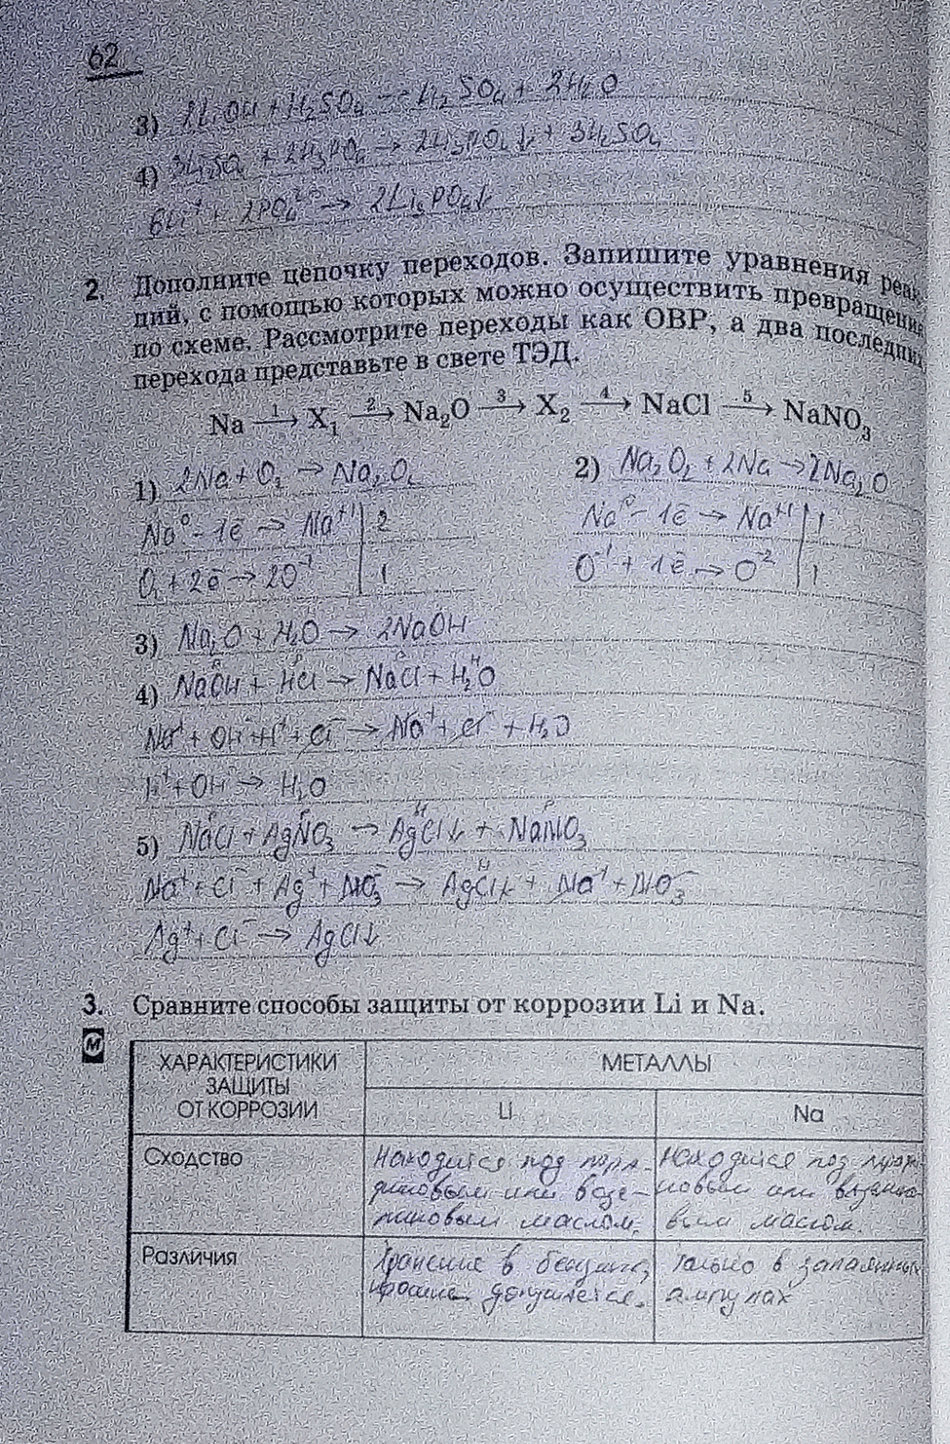 62
3) 2LiOH + H₂SO₄ → Li₂SO₄ + 2H₂O
4) 3Li₂SO₄ + 2H₃PO₄ → 2Li₃PO₄↓ + 3H₂SO₄
6Li⁺ + 2PO₄³⁻ → 2Li₃PO₄↓
2. Дополните цепочку переходов. Запишите уравнения реак-
ций, с помощью которых можно осуществить превращения
по схеме. Рассмотрите переходы как ОВР, а два последних
перехода представьте в свете ТЭД.
Na —1→ X₁ —2→ Na₂O —3→ X₂ —4→ NaCl —5→ NaNO₃
1) 2Na + O₂ → Na₂O₂
2) Na₂O₂ + 2Na → 2Na₂O
Na⁰ - 1ē → Na⁺¹ | 2
Na⁰ - 1ē → Na⁺¹ | 1
O₂ + 2ē → 2O⁻¹ | 1
O⁻¹ + 1ē → O⁻² | 1
3) Na₂O + H₂O → 2NaOH
4) NaOH + HCl → NaCl + H₂O
Na⁺ + OH⁻ + H⁺ + Cl⁻ → Na⁺ + Cl⁻ + H₂O
H⁺ + OH⁻ → H₂O
5) NaCl + AgNO₃ → AgCl↓ + NaNO₃
Na⁺ + Cl⁻ + Ag⁺ + NO₃⁻ → AgCl↓ + Na⁺ + NO₃⁻
Ag⁺ + Cl⁻ → AgCl↓
3. Сравните способы защиты от коррозии Li и Na.
М
ХАРАКТЕРИСТИКИ
ЗАЩИТЫ
ОТ КОРРОЗИИ
МЕТАЛЛЫ
Li
Na
Сходство
Находится под пара-
финовым или вазе-
линовым маслом.
Находится под
или
вым маслом.
Различия
Хранение в бензине,
допускается.
Только в запаянных
ампулах